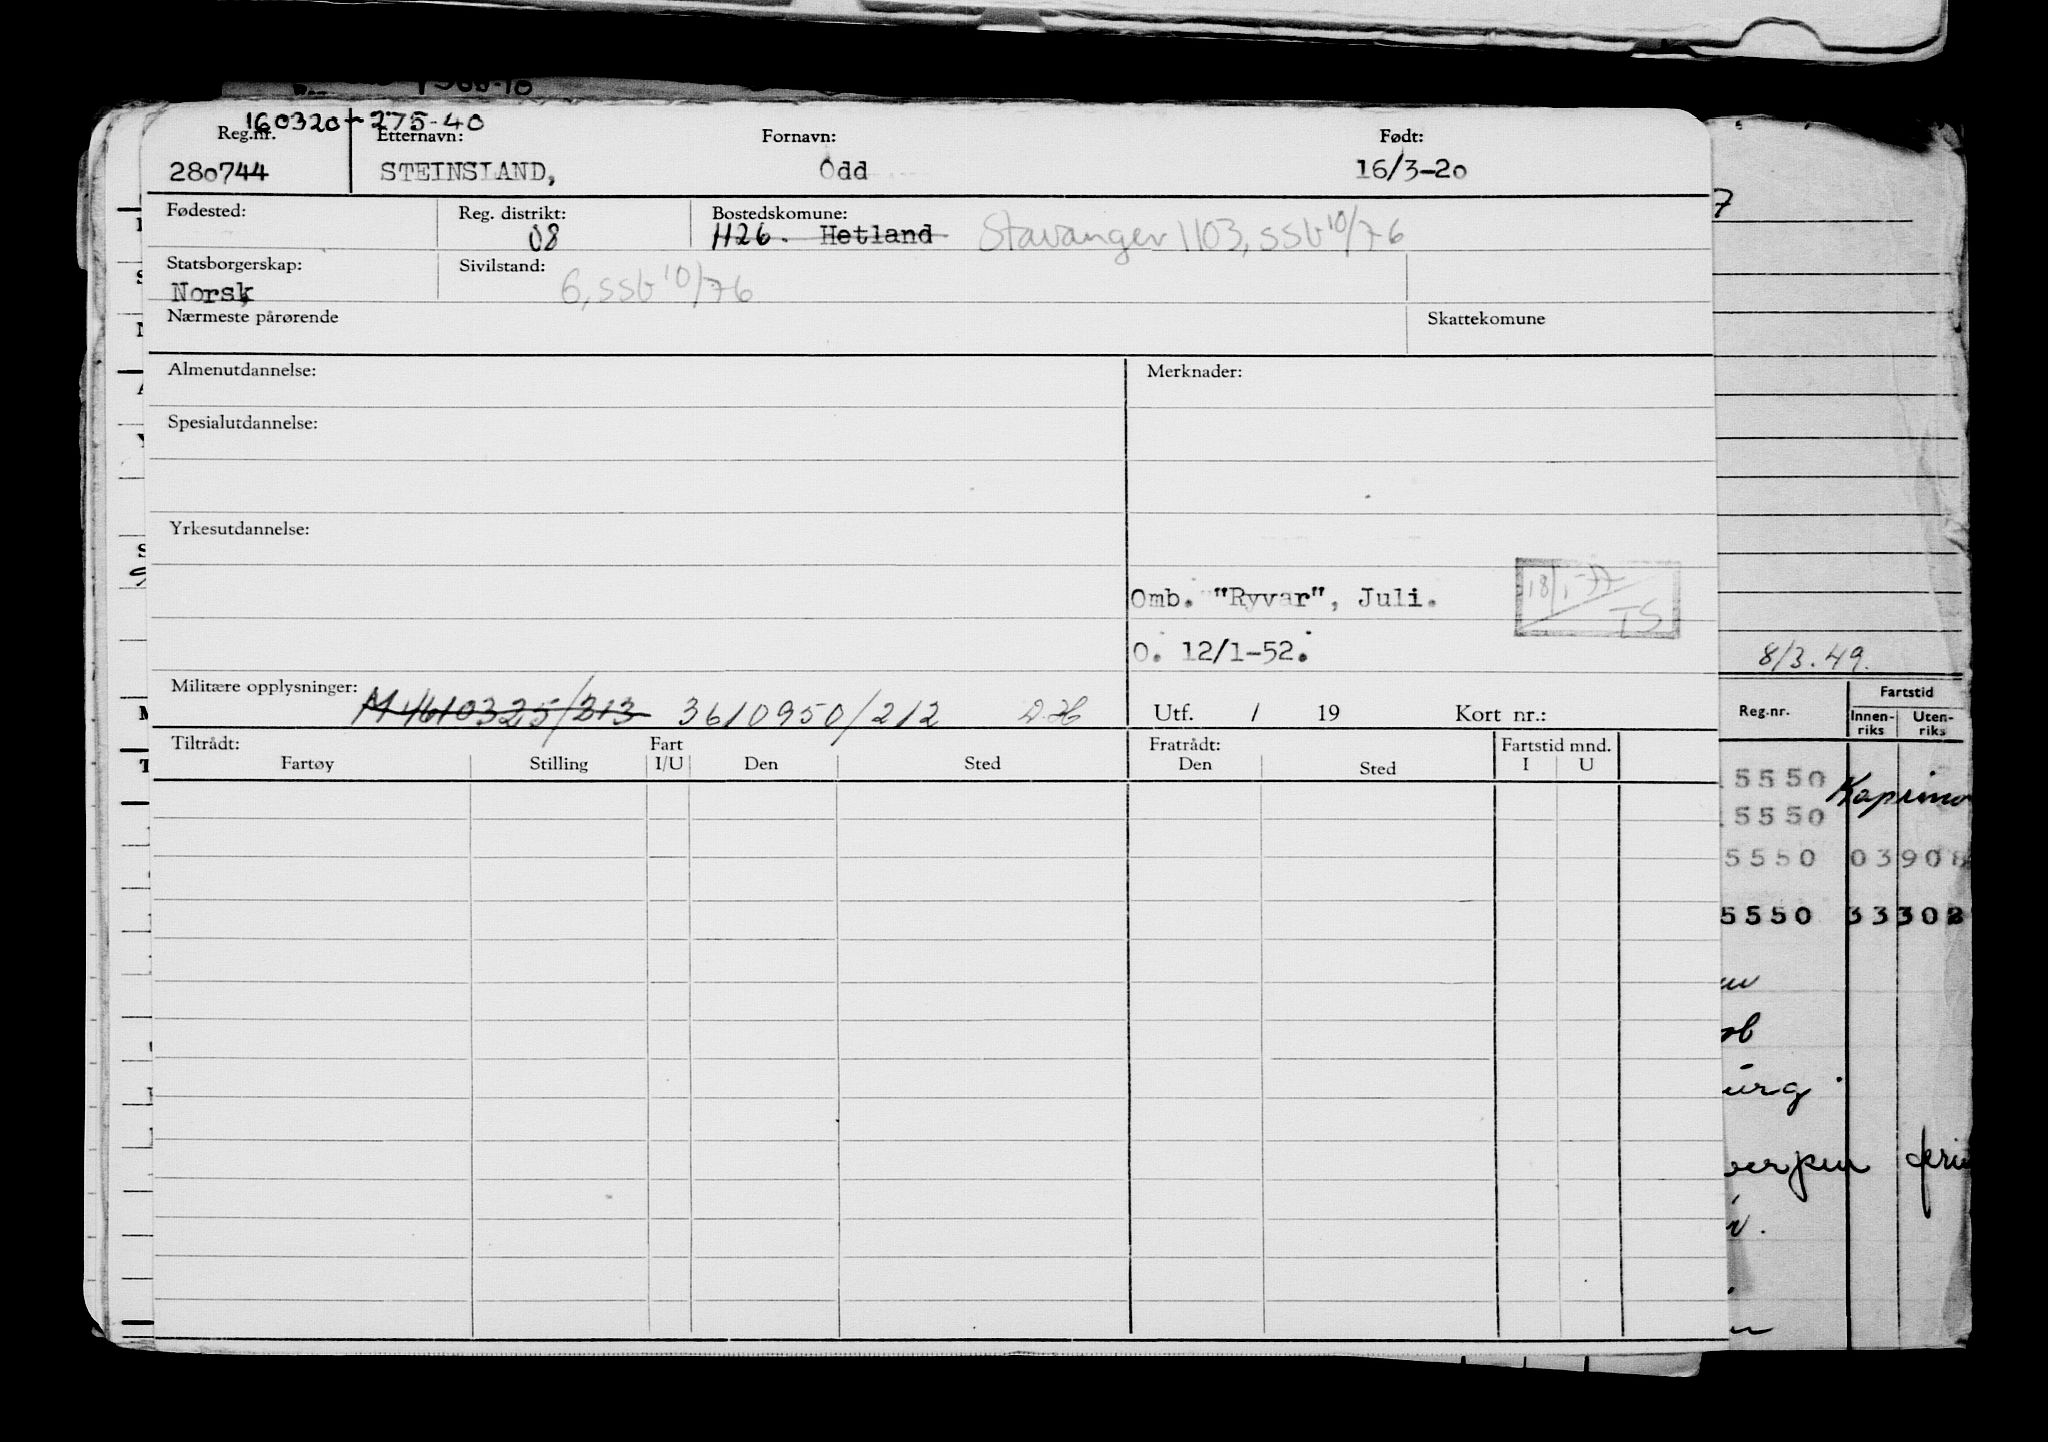 160320-275-40
Reg.nr. Etternavn: Fornavn: Født:
280744 STEINSLAND, Odd 16/3-20
Fødested: Reg. distrikt: Bostedskomune:
08 1126. Hetland Stavanger 1103, SSb 10/76
Statsborgerskap: Sivilstand:
Norsk 6, SSb 10/76
Nærmeste pårørende Skattekomune
Almenutdannelse: Merknader:
Spesialutdannelse:
Yrkesutdannelse:
Omb. "Ryvar", Juli. 18/1-77 TS
O. 12/1-52. 8/3.49.
Militære opplysninger: M4610325/213 3610950/212
Utf. / 19 Kort nr.:
Reg.nr. Fartstid
Innen-riks Uten-riks
Tiltrådt: Fart Fratrådt: Fartstid mnd.
Fartøy Stilling I/U Den Sted Den Sted I U
5550
5550
5550 03908
5550 33302